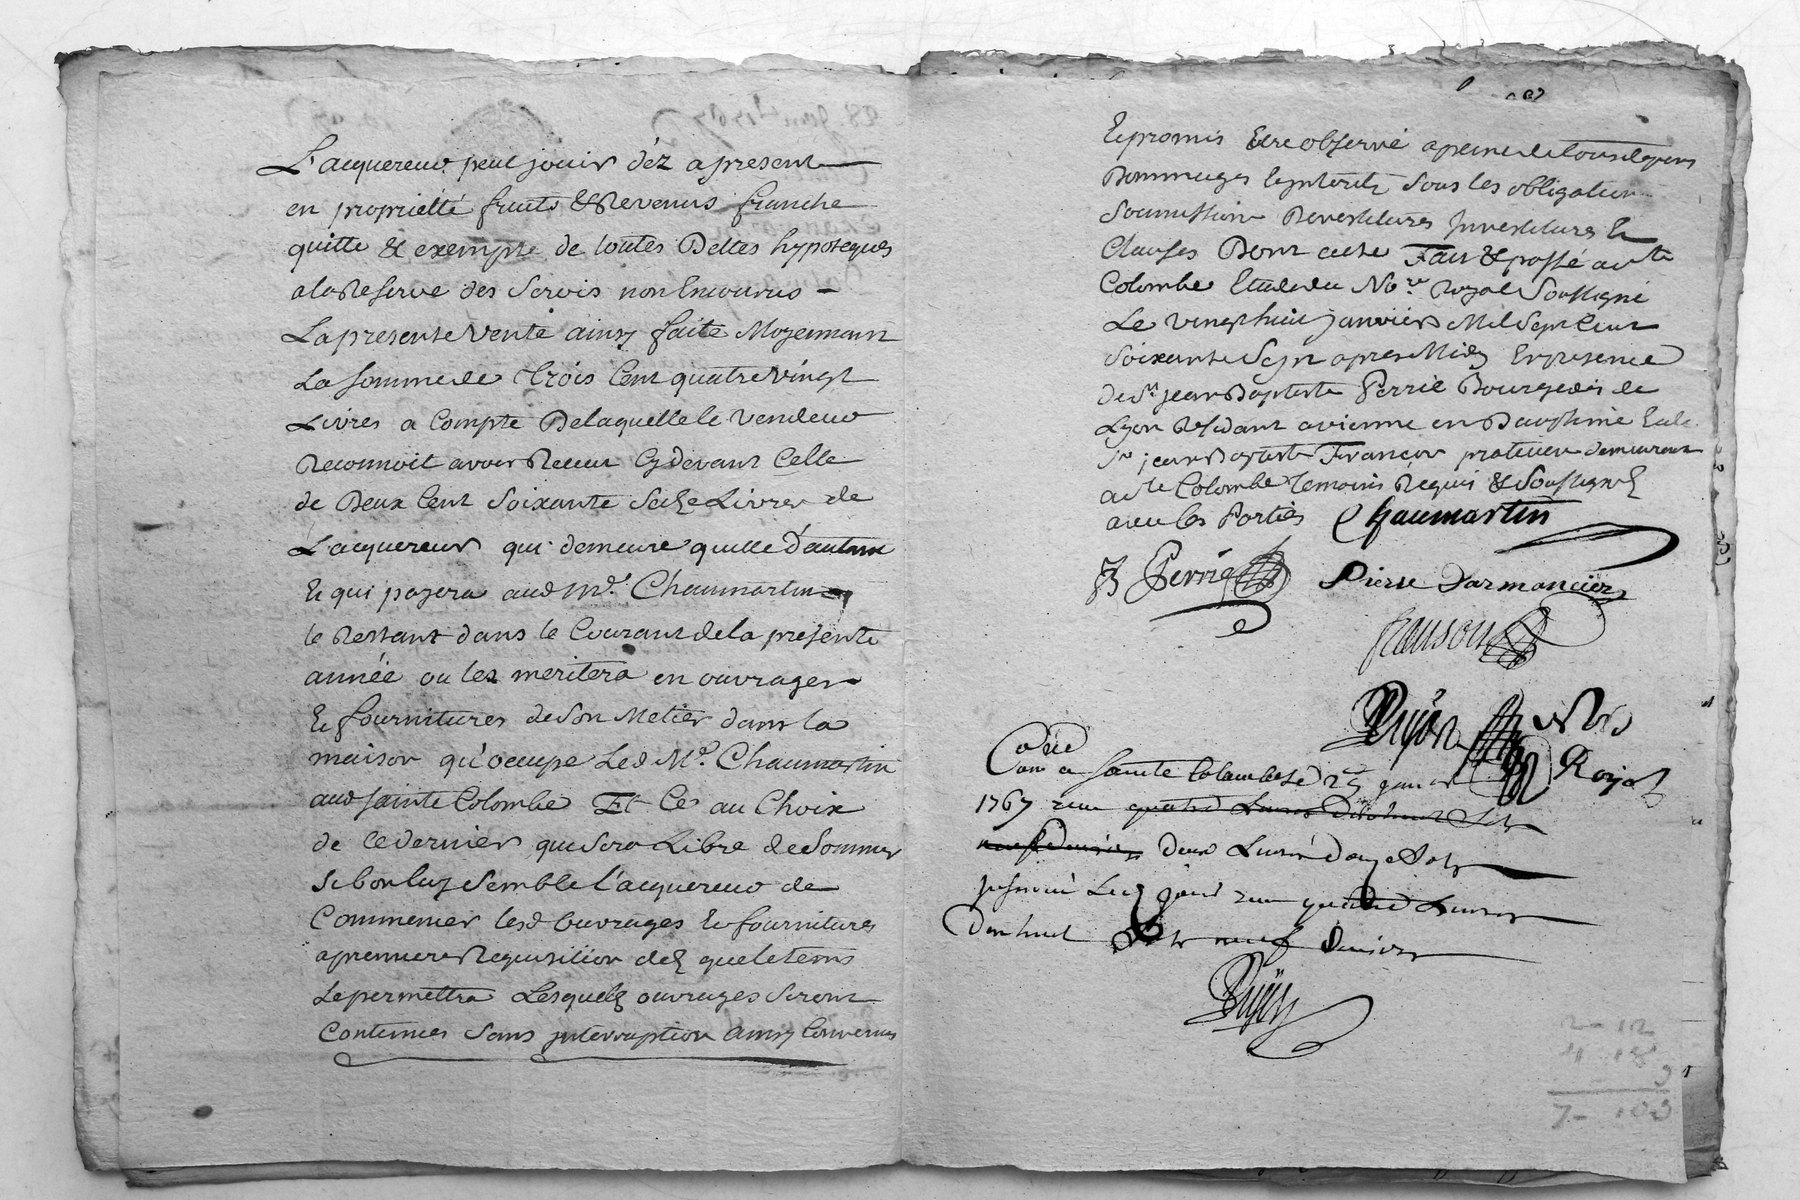 L'acquereur peut jouir déz apresent
en proprietté fruits & Revenus franche
quitte & exempte de toutes Dettes hypoteques
ala Reserve des Servis non Encourus -
La presente Vente ainsy faite Moyennant
La somme de Trois Cent quatre Vingt
Livres a Compte De laquelle le Vendeur
Reconnoit avoir Receu Cy devant Celle
de Deux Cent Soixante Seize Livres de
L'acquereur qui demeure quitte d'autant
Et qui payera aud Mr. Chaumartin
le Restant dans le Courant de la presente
année ou les meritera en ouvrages
Et fournitures de Son Metier dans la
maison qu'occupe Led Mr. Chaumartin
aud Sainte Colombe Et Ce au Choix
de Ce dernier que Sera Libre de Sommer
Si bon luy Semble l'acquereur de
Commencer lesd Ouvrages Et fournitures
apremiere Requisition dez que le tems
Le permettra Lesquelz ouvrages Seront
Continues Sans jnterruption Ainsy Convenus
Et promis Etre observé apeine de tous depens
Dommages Et jnterets Sous les obligations
Soumissions Devestitures Jnvestitures Et
Clauses Dont acte Fait & passé a Ste
Colombe Etude du Nore Royal Soussigné
Le Vingt huit janvier Mil Sept Cent
Soixante Sept apres Midy En presence
de Sr jean Baptiste Perrié Bourgeois de
Lyon Residant a vienne en Dauphiné Et de
Sr jean Baptiste François praticien demeurant
a Ste Colombe temoins Requis & Soussignez
avec les Parties Chaumartin
JB Perrié Pierre Darmancier
François
Nore
Royal
Con a Sainte Colombe Le 29 janer
1767 Reçu quatre Livres dix huit Sols
neuf deniers Deux Livres douze Sols
jnsinué Led jour Reçu quatre Livres
Dix huit Sols neuf Deniers
2 - 12
4 - 18
9
7 - 10 9